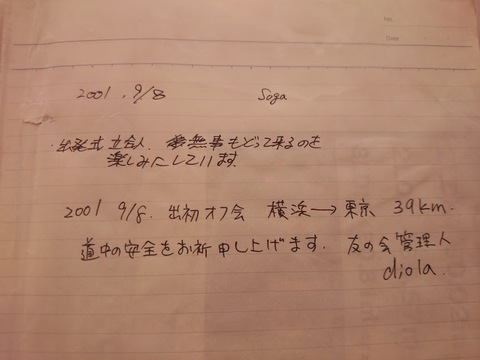 No.
Date
2001. 9/8 Soga
・出発式立会人. 無事もどって来るのを
楽しみにしています.
2001 9/8. 出初オフ会 横浜→東京 39km.
道中の安全をお祈申し上げます. 友の会管理人
diola.